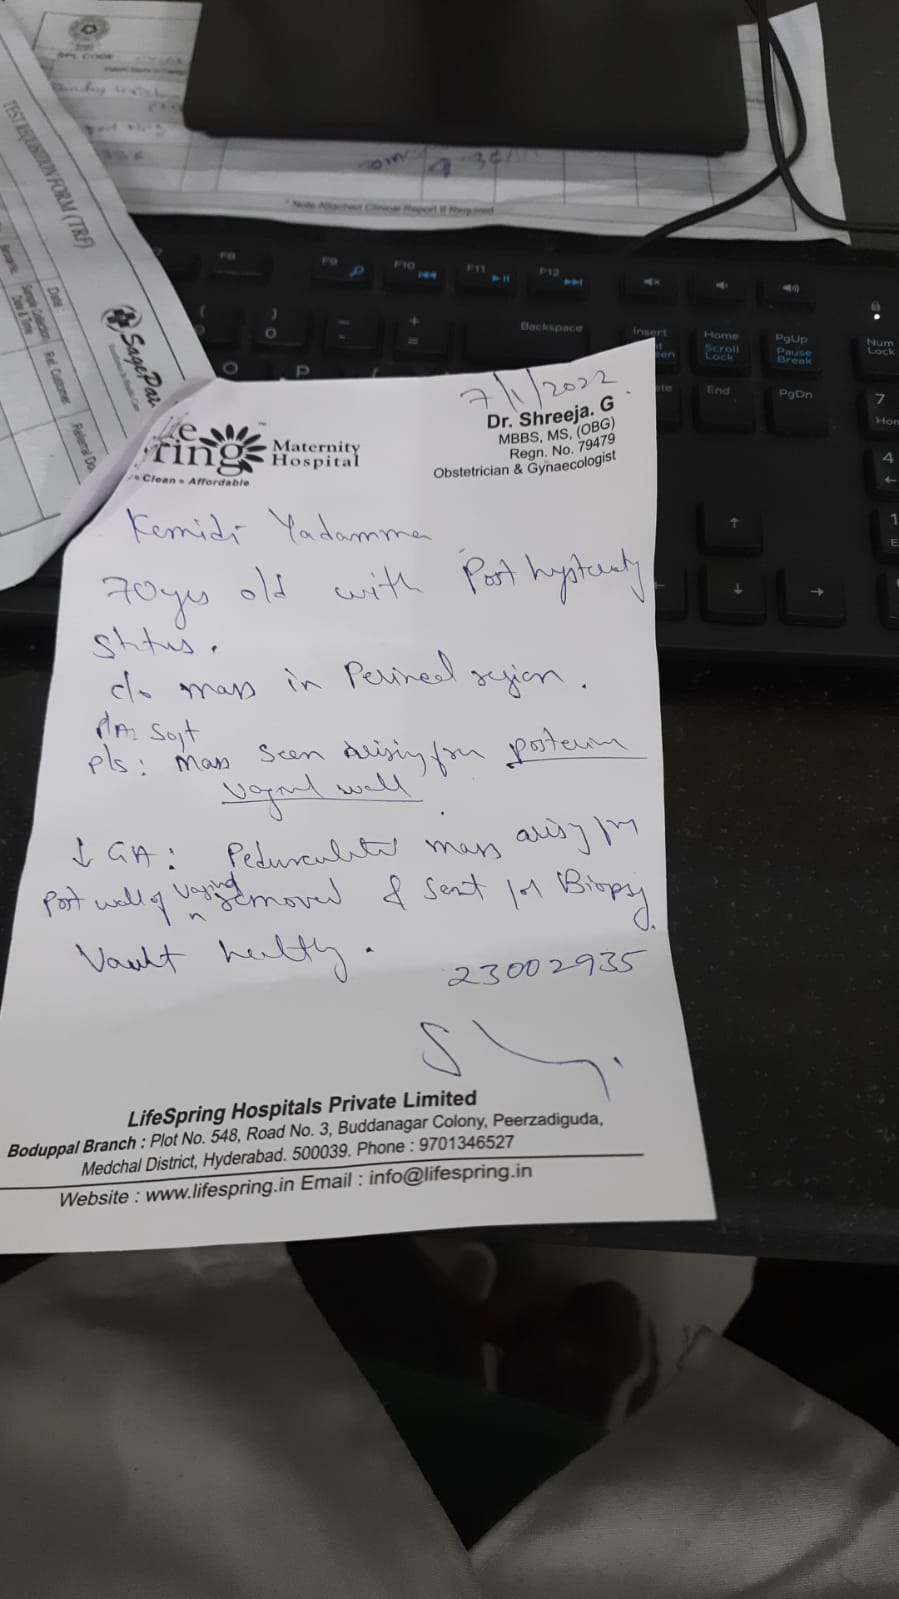 TEST REQUISITION FORM (TRF)
Date :
Ref. Customer
Sample Collection
Date & Time
SagePa
* Note Attached Clinical Report If Required
F8
F9
F10
F11
F12
Backspace
Insert
Home
Scroll
Lock
PgUp
Pause
Break
Num
Lock
End
PgDn
7
4
1
O
P
7/1/2022
Dr. Shreeja. G
MBBS, MS, (OBG)
Regn. No. 79479
Obstetrician & Gynaecologist
Maternity
Hospital
Clean • Affordable
Kemidi Yadamma
70yrs old with Post hysterectomy
status.
c/o mass in Perineal region.
P/A: Soft
P/s: Mass seen arising from posterior
vaginal wall
↓ GA: Pedunculated mass arising from
Post wall of vagina removed & sent for Biopsy.
Vault healthy.
23002935
LifeSpring Hospitals Private Limited
Boduppal Branch : Plot No. 548, Road No. 3, Buddanagar Colony, Peerzadiguda,
Medchal District, Hyderabad. 500039. Phone : 9701346527
Website : www.lifespring.in Email : info@lifespring.in